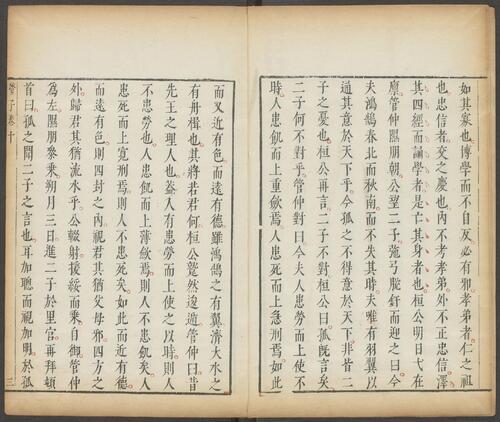 如其寡也博學而不自反必有邪孝弟者仁之祖
也忠信者交之慶也内不考孝弟外不正忠信澤
其四經而誦學者是亡其身者也桓公明日弋在
廩管仲隰朋朝公望二子弛弓脫釬而迎之曰今
夫鴻鵠春北而秋南而不失其時夫唯有羽翼以
通其意於天下乎今孤之不得意於天下非皆二
子之憂也桓公再言二子不對桓公曰孤既言矣
二子何不對乎管仲對曰今夫人患勞而上使不
時人患飢而上重斂焉人患死而上急刑焉如此
而又近有色而遠有德雖鴻鵠之有翼濟大水之
有舟楫也其將若君何桓公蹵然逡遁管仲曰昔
先王之理人也蓋人有患勞而上使之以時則人
不患勞也人患飢而上薄斂焉則人不患飢矣人
患死而上寬刑焉則人不患死矣如此而近有德
而遠有色則四封之内視君其猶父母邪四方之
外歸君其猶流水乎公輟射援綏而乘自御管仲
為左隰朋參乘朔月三日進二子於里官再拜頓
首曰孤之聞二子之言也耳加聰而視加明於孤
管子卷十 三